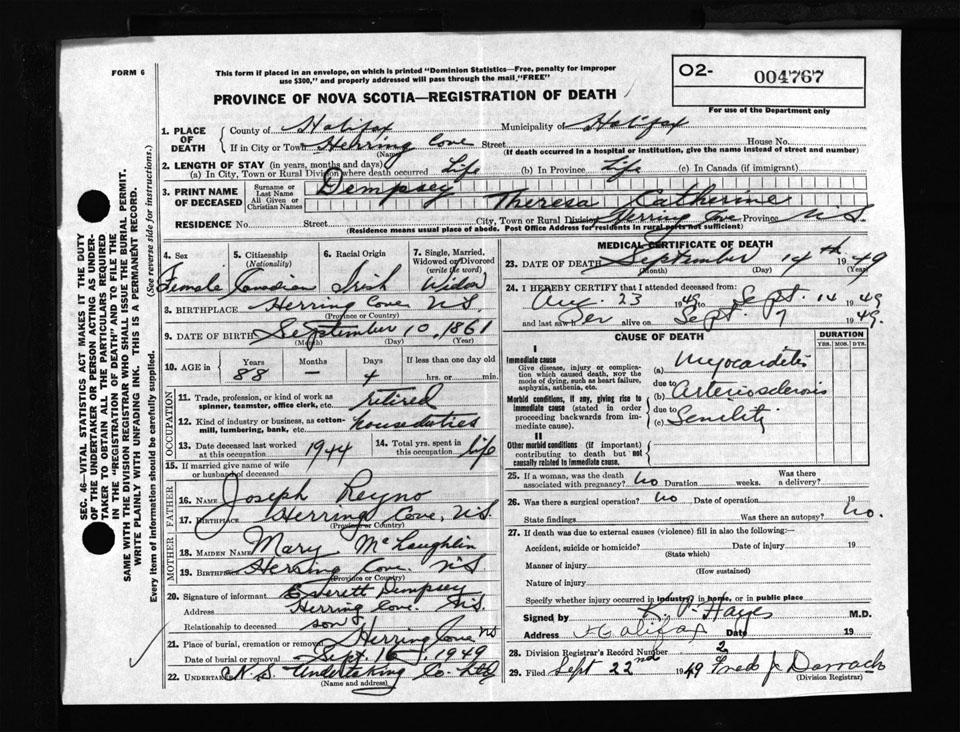 FORM 6
This form if placed in an envelope, on which is printed "Dominion Statistics—Free, penalty for improper
use $300," and properly addressed will pass through the mail, "FREE"
O2- 004767
For use of the Department only
PROVINCE OF NOVA SCOTIA—REGISTRATION OF DEATH
1. PLACE OF DEATH
County of Halifax Municipality of Halifax
If in City or Town Herring Cove Street House No.
(Name) (If death occurred in a hospital or institution, give the name instead of street and number)
2. LENGTH OF STAY (in years, months and days)
(a) In City, Town or Rural Division where death occurred Life (b) In Province Life (c) In Canada (if immigrant)
3. PRINT NAME OF DECEASED
Surname or Last Name Dempsey
All Given or Christian Names Theresa Catherine
RESIDENCE No. Street City, Town or Rural Division Herring Cove Province N.S.
(Residence means usual place of abode. Post Office Address for residents in rural parts not sufficient)
4. Sex Female
5. Citizenship (Nationality) Canadian
6. Racial Origin Irish
7. Single, Married, Widowed or Divorced (write the word) Widow
8. BIRTHPLACE Herring Cove N.S.
(Province or Country)
9. DATE OF BIRTH September 10, 1861
(Month) (Day) (Year)
10. AGE in Years 88 Months — Days 4 If less than one day old hrs. or min.
OCCUPATION
11. Trade, profession, or kind of work as spinner, teamster, office clerk, etc. retired
12. Kind of industry or business, as cotton-mill, lumbering, bank, etc. house duties
13. Date deceased last worked at this occupation 1944
14. Total yrs. spent in this occupation life
15. If married give name of wife or husband of deceased
FATHER
16. NAME Joseph Reyno
17. BIRTHPLACE Herring Cove, N.S.
(Province or Country)
MOTHER
18. MAIDEN NAME Mary McLaughlin
19. BIRTHPLACE Herring Cove. N.S.
(Province or Country)
20. Signature of informant Everett Dempsey
Address Herring Cove. N.S.
Relationship to deceased son
21. Place of burial, cremation or removal Herring Cove NS
Date of burial or removal Sept. 16, 1949
22. UNDERTAKER N.S. Undertaking Co. Ltd
(Name and address)
MEDICAL CERTIFICATE OF DEATH
23. DATE OF DEATH September 14th 1949
(Month) (Day) (Year)
24. I HEREBY CERTIFY that I attended deceased from:
Aug. 23 1949 to Sept. 14 1949
and last saw her alive on Sept. 7 1949.
CAUSE OF DEATH
DURATION
YRS. MOS. DYS.
I
Immediate cause
Give disease, injury or complication which caused death, NOT the mode of dying, such as heart failure, asphyxia, asthenia, etc.
(a) Myocarditis
due to
Morbid conditions, if any, giving rise to immediate cause (stated in order proceeding backwards from immediate cause).
(b) Arteriosclerosis
due to
(c) Senility
II
Other morbid conditions (if important) contributing to death but not causally related to immediate cause.
25. If a woman, was the death associated with pregnancy? no Duration weeks. Was there a delivery?
26. Was there a surgical operation? no Date of operation 19
State findings Was there an autopsy? no.
27. If death was due to external causes (violence) fill in also the following:—
Accident, suicide or homicide? Date of injury 19
(State which)
Manner of injury
(How sustained)
Nature of injury
Specify whether injury occurred in industry, in home, or in public place
Signed by K. P. Hayes M.D.
Address Halifax Date 19
28. Division Registrar's Record Number 2
29. Filed Sept 22nd 1949 Fred J Darrach
(Division Registrar)
SEC. 46—VITAL STATISTICS ACT MAKES IT THE DUTY
OF THE UNDERTAKER OR PERSON ACTING AS UNDER-
TAKER TO OBTAIN ALL THE PARTICULARS REQUIRED
IN THE "REGISTRATION OF DEATH" AND TO FILE THE
SAME WITH THE DIVISION REGISTRAR WHO SHALL ISSUE THE BURIAL PERMIT.
WRITE PLAINLY WITH UNFADING INK. THIS IS A PERMANENT RECORD.
Every item of information should be carefully supplied. (See reverse side for instructions.)